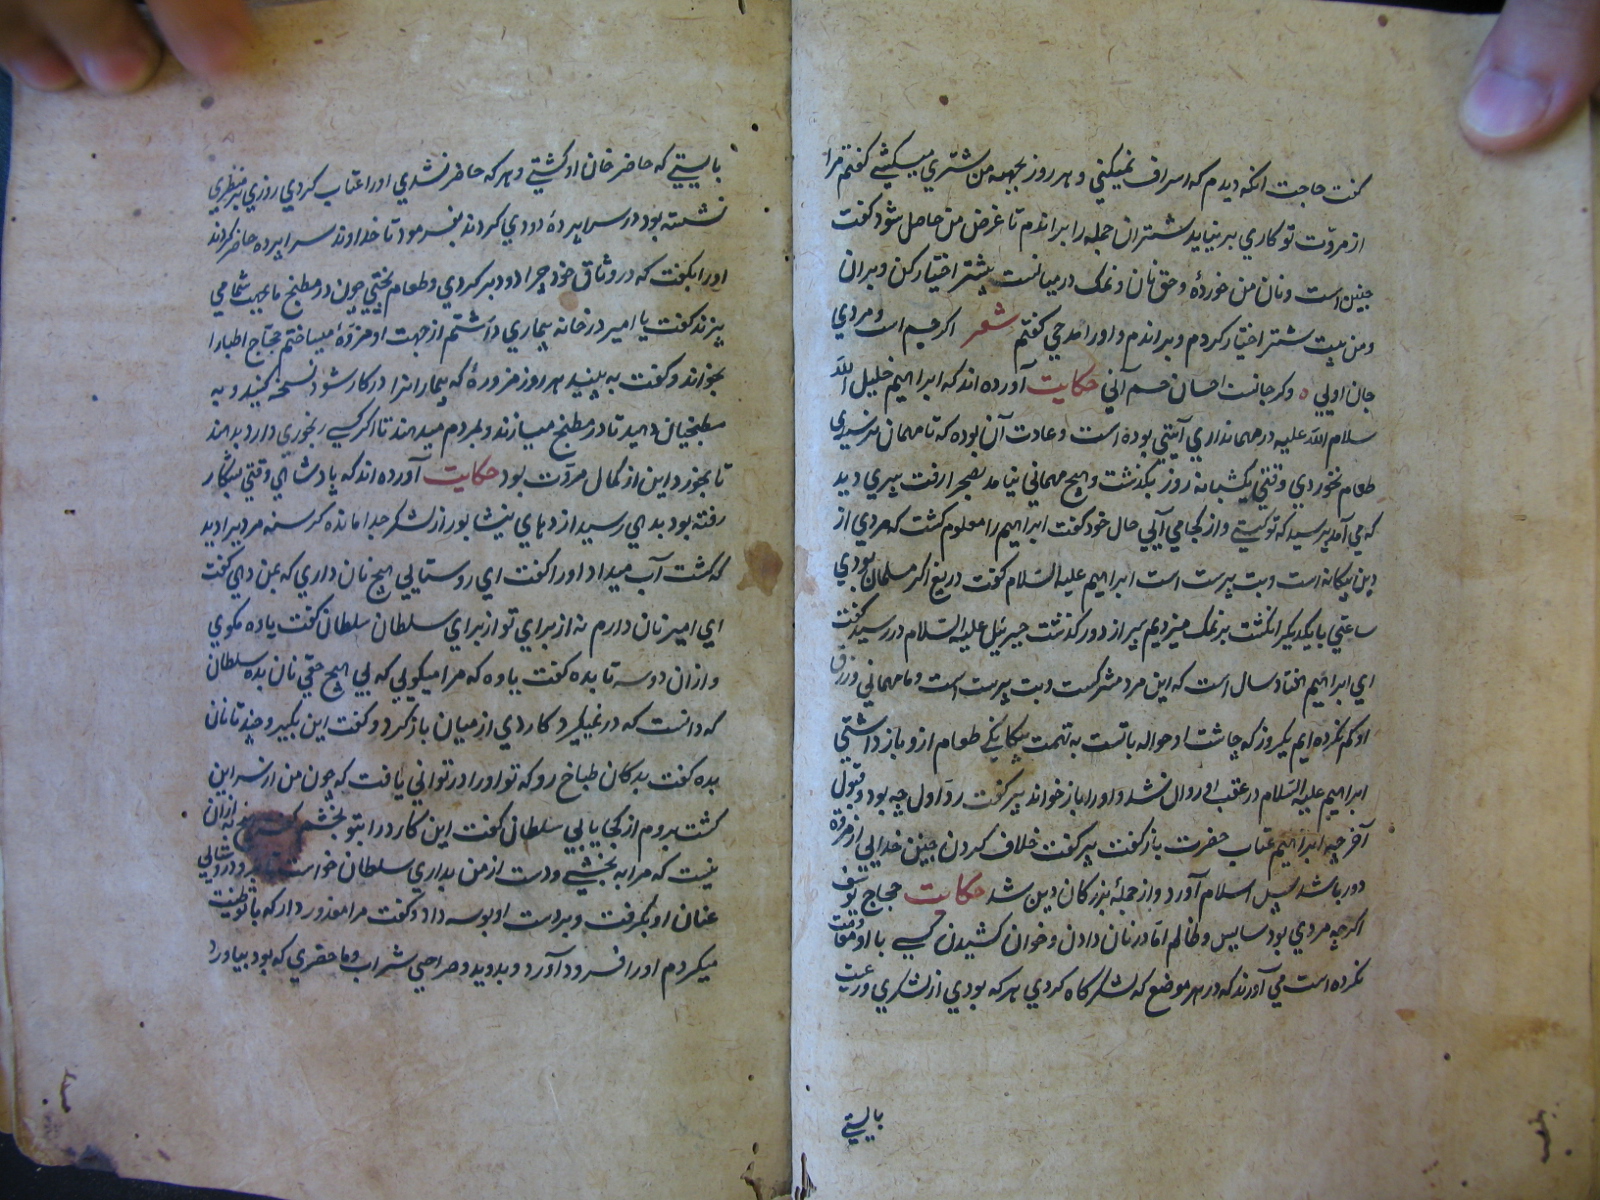 گفت حاجت انکه دیدم که اسراف نمیکنی و هر روز بجهه من شتری میکشی گفتم مرا
از مروّت تو کاری بر نیاید شتران جمله را براندم تا غرض من حاصل شود گفت
چنین است و نان من خوردهٔ و حق نان و نمک در میانست بیشتر اختیار کن و بران
و من بیست شتر اختیار کردم و براندم و او را مدحی گفتم شعر اکر جسم است و مردی
جان اولی ه وکر جانست احسان جسم آنی حکایت آورده اند که ابراهیم خلیل الله
سلام الله علیه در مهمانداری آیتی بوده است و عادت آن بوده که تا مهمان نرسیدی
طعام نخوردی وقتی یکشبانه روز بگذشت و هیچ مهمانی نیامد بصحرا رفت پیری دید
که می آمد پرسید که تو کیستی و از کجا می آیی حال خود گفت ابراهیم را معلوم گشت که مردی از
دین بیکانه است و بت پرست است ابراهیم علیه السّلام گفت دریغ اکر مسلمان بودی
ساعتی با یکدیکر انگشت بر نمک میزدیم پیر از در گذشت جبرئیل علیه السّلام در رسید گفت
ای ابراهیم هفتاد سال است که این مرد مشرکست و بت پرست است و ما مهمانی و رزق
او کم نکرده ایم یکروز که چاشت او حواله با تست به تهمت بیکانکی طعام ازو باز داشتی
ابراهیم علیه السّلام در عقب او روان شد و او را باز خواند پیر گفت ردّ اول چه بود و قبول
آخر چه ابراهیم عتاب حضرت باز گفت پیر گفت خلاف کردن چنین خدایی از مروّة
دور باشد پس اسلام آورد و از جملهٔ بزرکان دین شد حکایت حجاج یوسف
اکرچه مردی بود سایس و ظالم امّا در نان دادن و خوان کشیدن کسی با او
نکرده است می آورند که در هر موضع که لشکر کاه کردی هر که بودی از لشکری و رعیت
بایستی
بایستی که حاضر خان او کشتی و هر که حاضر نشدی او را عتاب کردی روزی بر منظری
نشسته بود در سراپردهٔ دودی کردند بفرمود تا خداوند سراپرده حاضر کردند
او را بگفت که در وثاق خود چرا دود بر کردی و طعام پختی چون در مطبخ ما بجهت شما می
پزند گفت یا امیر در خانه بیماری داشتم از جهت او مزوّهٔ میساختم حجاج اطبا را
بخواند و گفت به بینید هر روز مزورهٔ که بیمارانرا در کار شود نسخه کنید و به
مطبخیان دهید تا در مطبخ میسازند و بمردم میدهند تا اکر کسی رنجوری دارد بدهند
تا بخورد و این از کمال مروّت بود حکایت آورده اند که پادشاهی وقتی بشکار
رفته بود بدهی رسید از دهای نیشابور از لشکر جدا مانده کرسنه مردیرا دید
که کشت آب میداد او را گفت ای روستایی هیچ نان داری که بمن دهی گفت
ای امیر نان دارم نه از برای تو از برای سلطان سلطان گفت یاوه مکوی
و از ان دو سه تا بده گفت یاوه که مرا میکویی که بی هیچ حقی نان بده سلطان
که دانست که در نمیکیرد کاردی از میان باز کرد و گفت این بکیر و چند تا نان
بده گفت بدکان طباخ رو که تو او را در توانی یافت که چون من از سر این
کشت بروم از کجا یابی سلطان گفت این کارد را بتو بخشم از ان
نیست که مرا به بخشی و دست از من بداری سلطان خواست
عنان او بگرفت و بر دست او بوسه داد و گفت مرا معذور دار که با تو طیبت
میکردم او را فرود آورد و بدوید و صراحی شراب و ما حضری که بود بیاورد